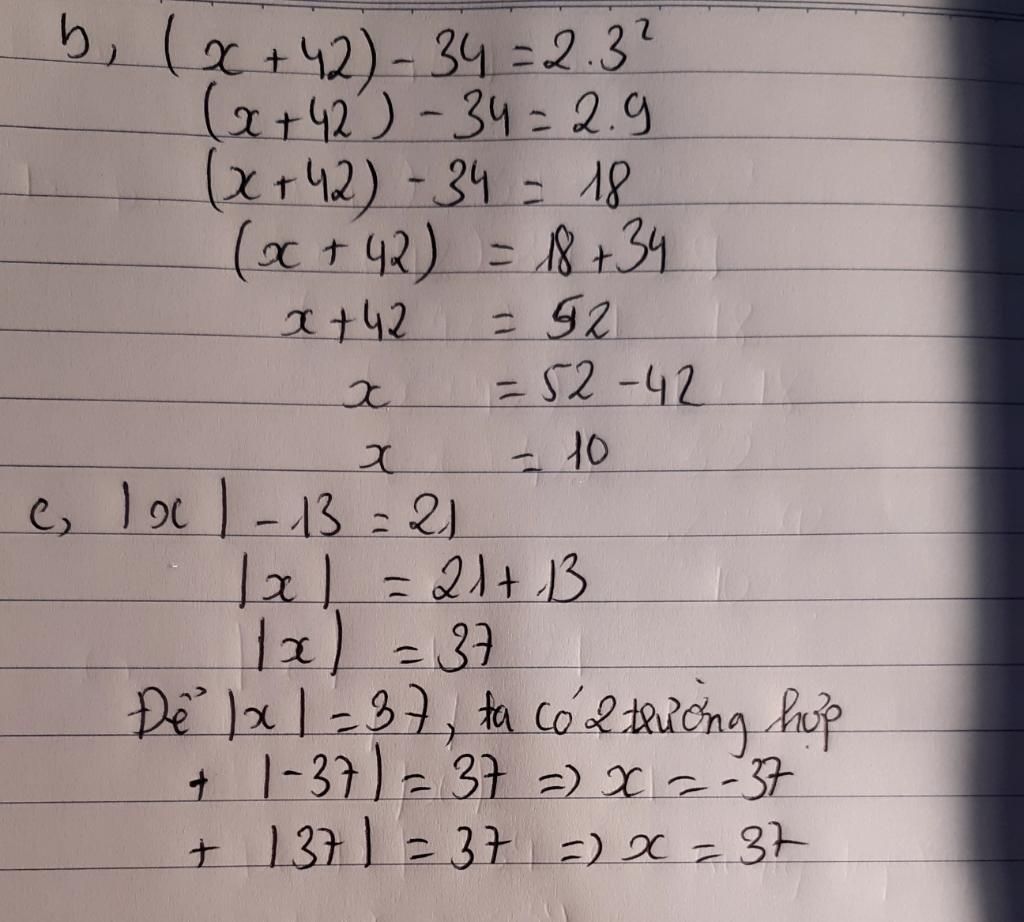 b, (x + 42) - 34 = 2.3²
(x + 42) - 34 = 2.9
(x + 42) - 34 = 18
(x + 42) = 18 + 34
x + 42 = 52
x = 52 - 42
x = 10
c, |x| - 13 = 21
|x| = 21 + 13
|x| = 37
Để |x| = 37, ta có 2 trường hợp
+ |-37| = 37 => x = -37
+ |37| = 37 => x = 37